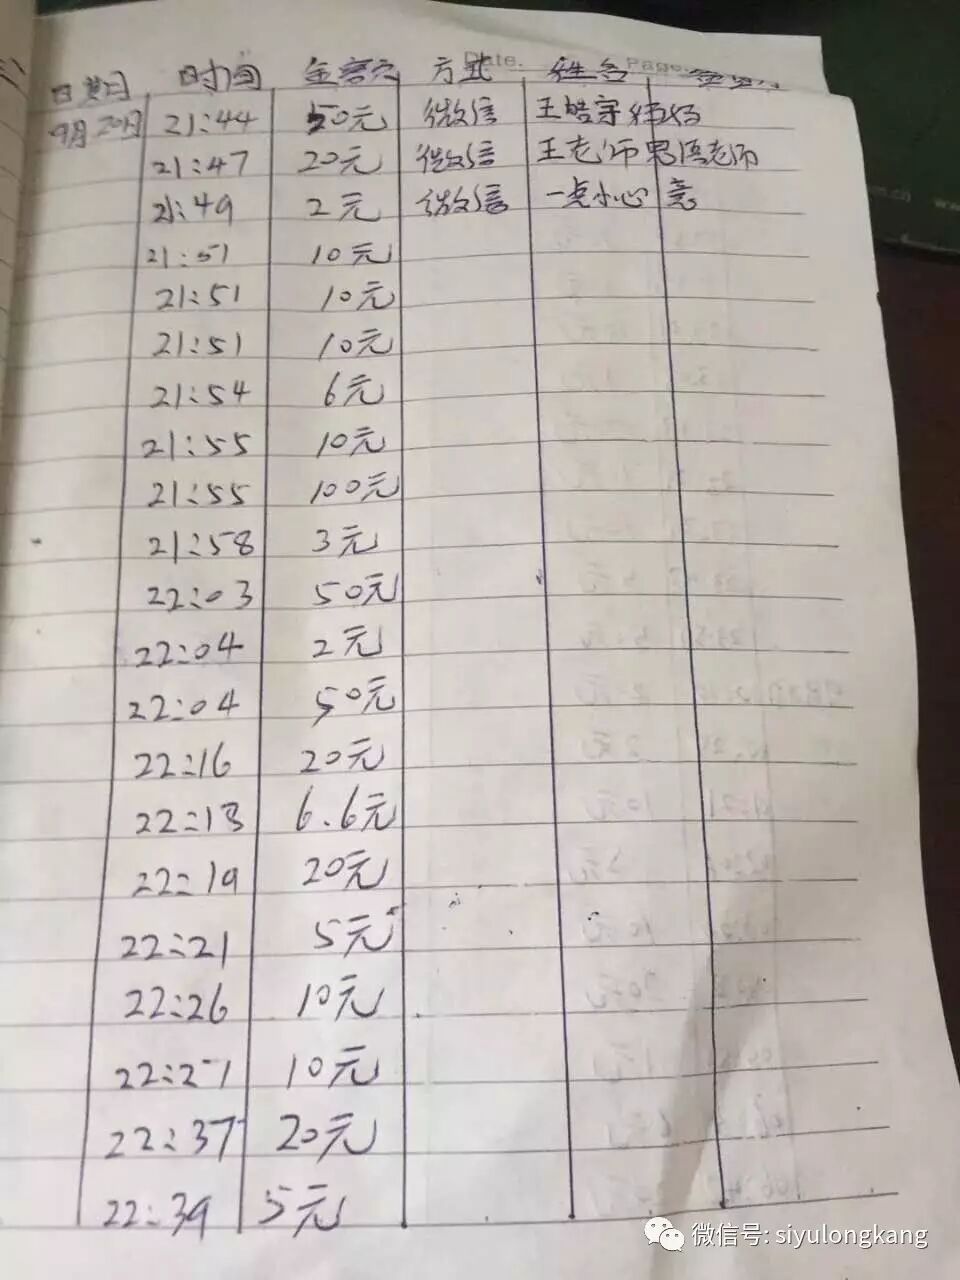 Date. Page.
日期 时间 金额 方式 姓名
9月20日 21:44 50元 微信 王皓宇妈妈
21:47 20元 微信 王老师思语老师
21:49 2元 微信 一点小心意
21:51 10元
21:51 10元
21:51 10元
21:54 6元
21:55 10元
21:55 100元
21:58 3元
22:03 50元
22:04 2元
22:04 50元
22:16 20元
22:18 6.6元
22:19 20元
22:21 5元
22:26 10元
22:27 10元
22:37 20元
22:39 5元
微信号: siyulongkang